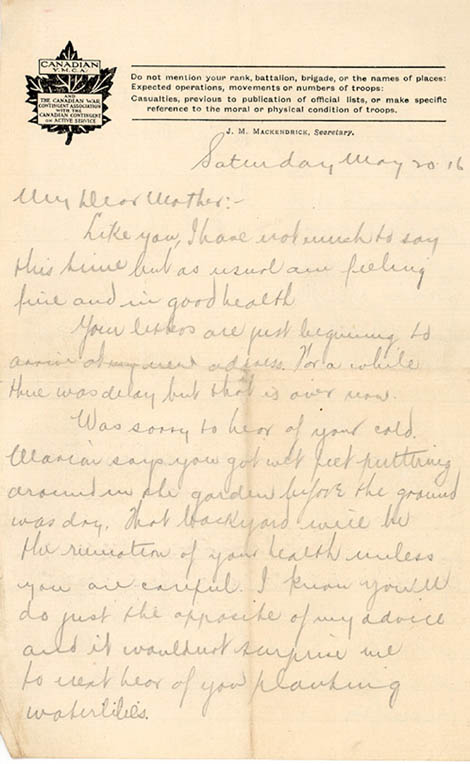 CANADIAN
Y.M.C.A.
AND
THE CANADIAN WAR
CONTINGENT ASSOCIATION
WITH THE
CANADIAN CONTINGENT
ON ACTIVE SERVICE
Do not mention your rank, battalion, brigade, or the names of places:
Expected operations, movements or numbers of troops:
Casualties, previous to publication of official lists, or make specific
reference to the moral or physical condition of troops.
J. M. MACKENDRICK, Secretary.
Saturday May 20. 16
My Dear Mother:-
Like you, I have not much to say
this time but as usual am feeling
fine and in good health
Your letters are just beginning to
arrive at my new address. For a while
there was delay but that is over now.
Was sorry to hear of your cold.
Marion says you got wet feet puttering
around in the garden before the ground
was dry. That backyard will be
the ruination of your health unless
you are careful. I know you'll
do just the opposite of my advice
and it wouldnt surprise me
to next hear of you planting
waterlilies.